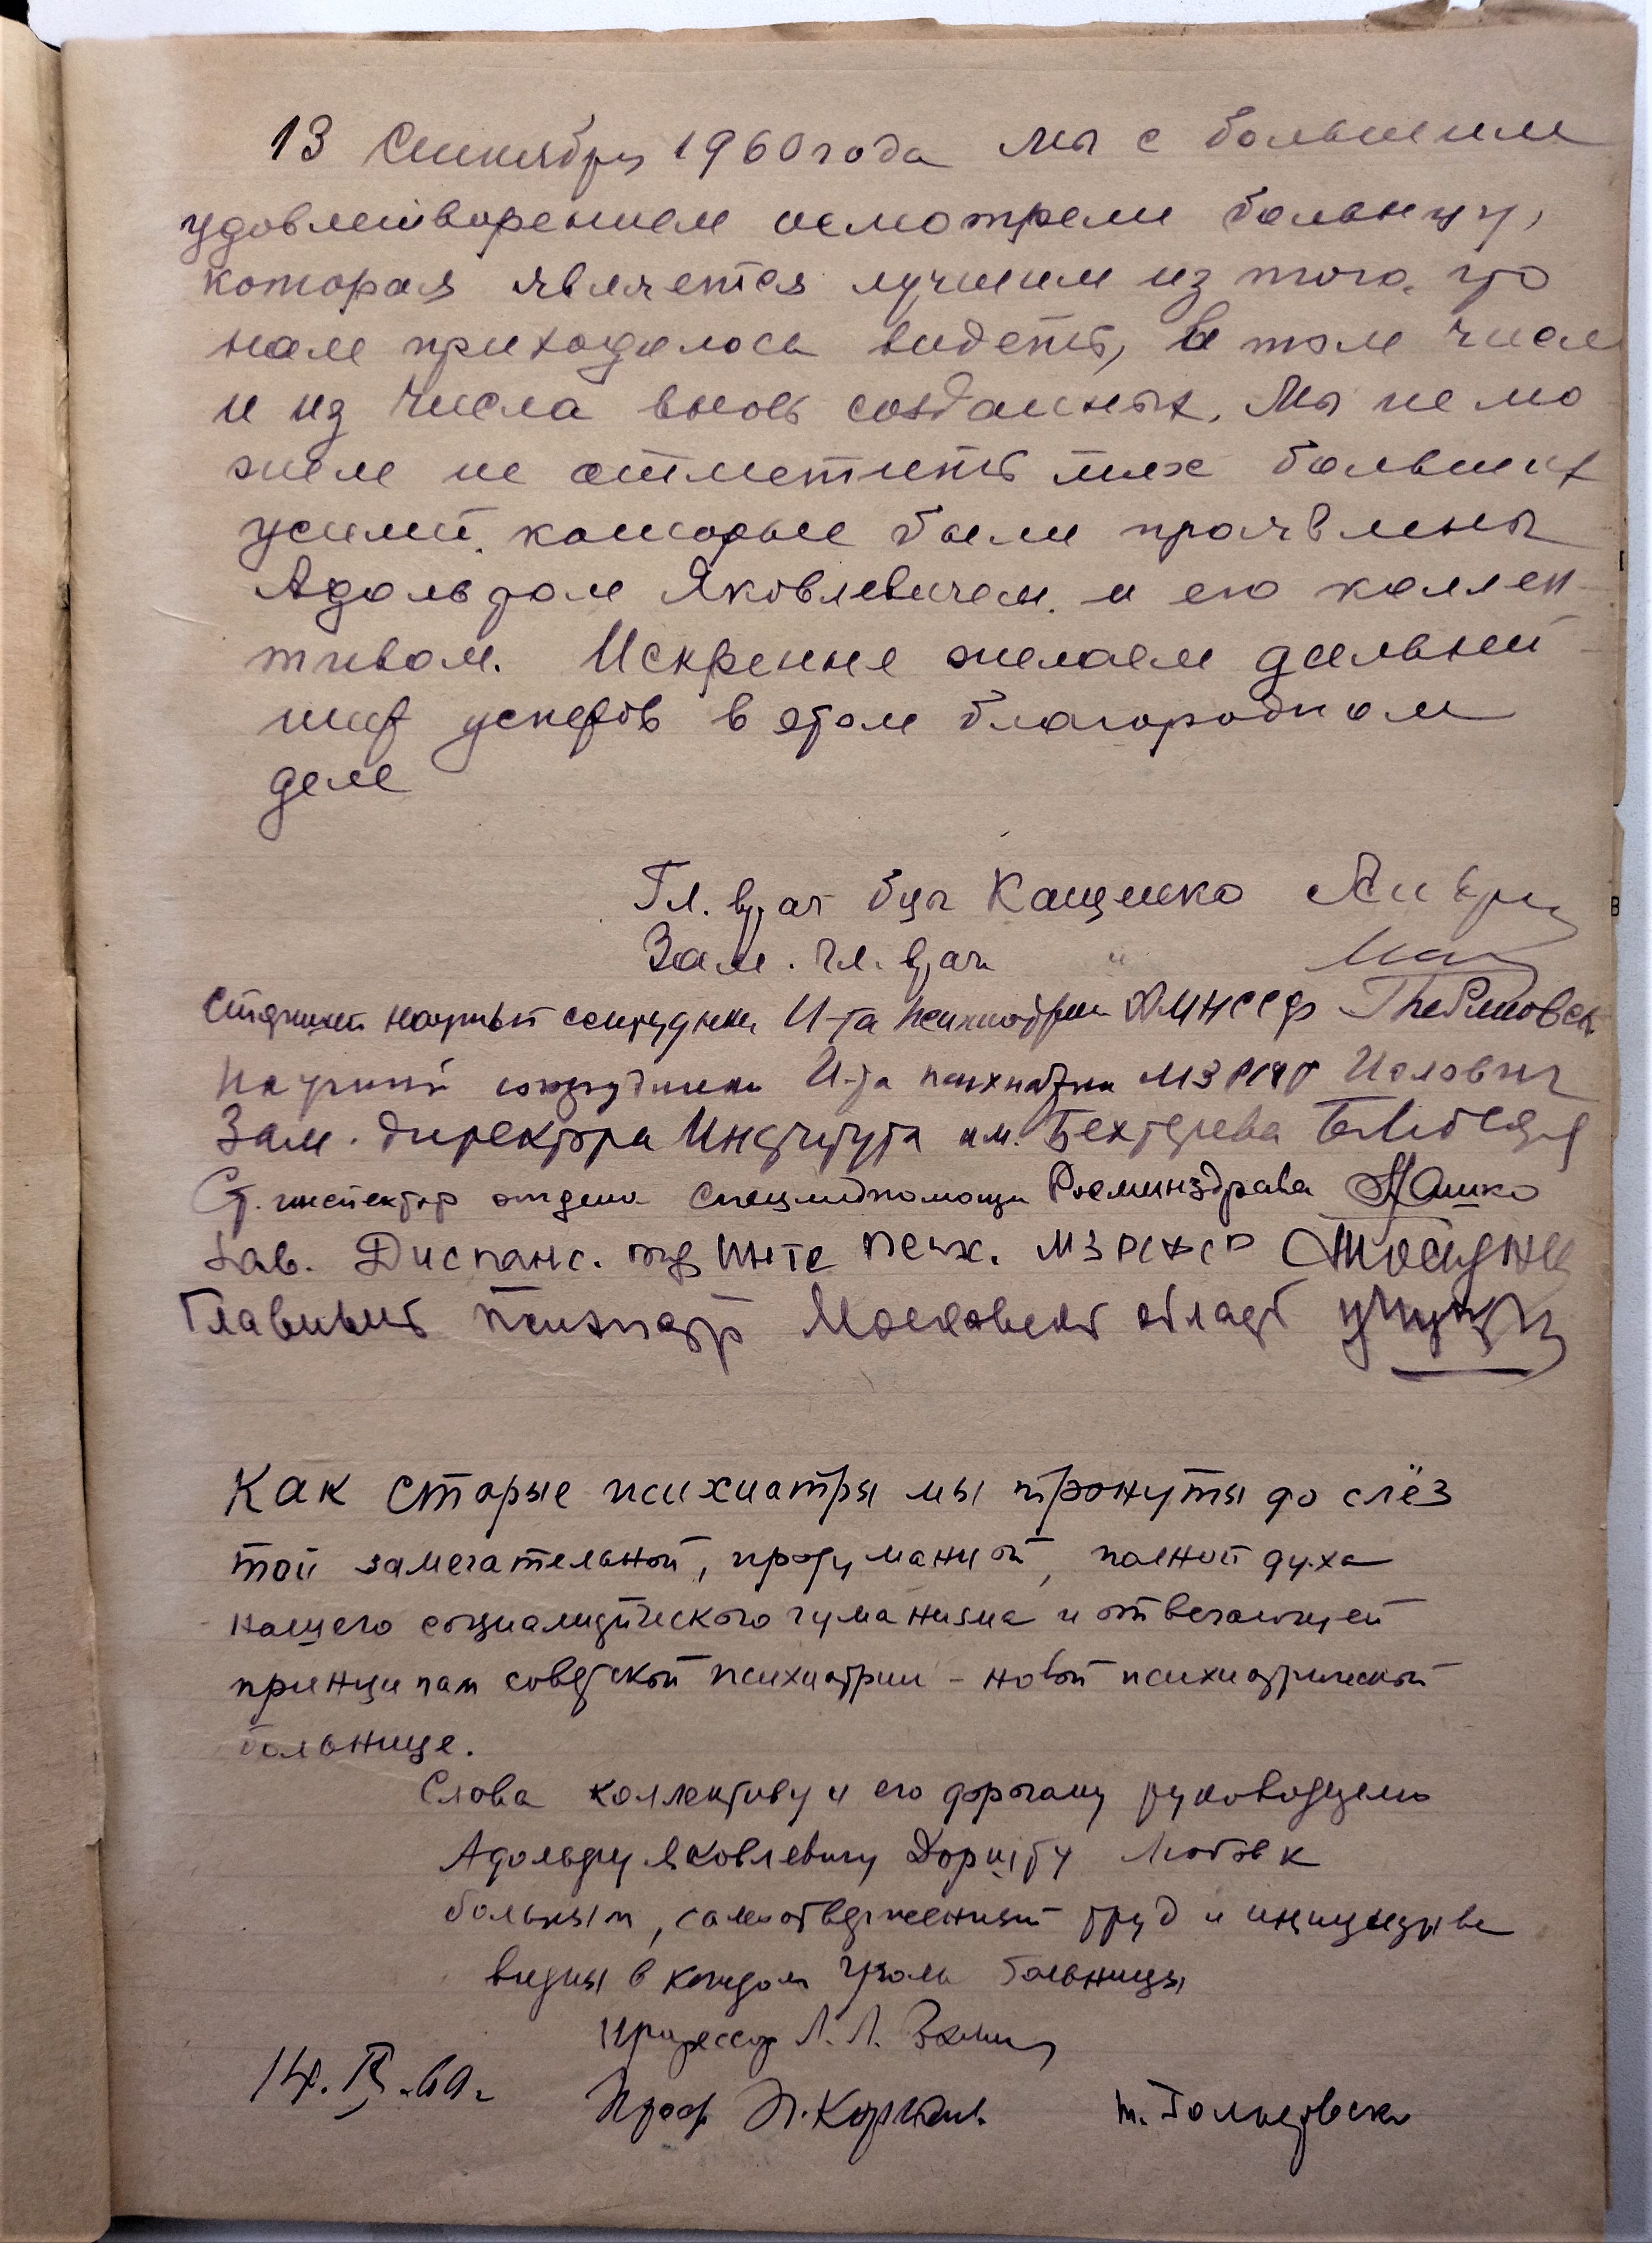 13 Сентября 1960 года мы с большим
удовлетворением осмотрели больницу,
которая является лучшим из того, что
нам приходилось видеть, в том числе
и из числа вновь созданных. Мы не мо
жем не отметить тех больших
усилий, которые были проявлены
Адольфом Яковлевичем и его коллек-
тивом. Искренне желаем дальней-
ших успехов в этом благородном
деле
Гл. врач б-цы Кащенко
Зам. гл. врача "
Старший научный сотрудник И-та психиатрии АМН СССР
Научный сотрудник И-та психиатрии МЗ РСФСР
Зам. директора Института им. Бехтерева
Ст. инспектор отдела спецмедпомощи Росминздрава
Зав. Диспанс. отд Инте псих. МЗ РСФСР
Главный психиатр Московской област
Как старые психиатры мы тронуты до слёз
той замечательной, продуманной, полной духа
нашего социалистического гуманизма и отвечающей
принципам советской психиатрии – новой психиатрической
больнице.
Слава коллективу и его дорогому руководителю
Адольфу Яковлевичу Доррибу Любовь к
больным, самоотверженный труд и инициатива
видны в каждом уголке больницы
Профессор Л. Л.
14. IX. 60 г.
Проф.